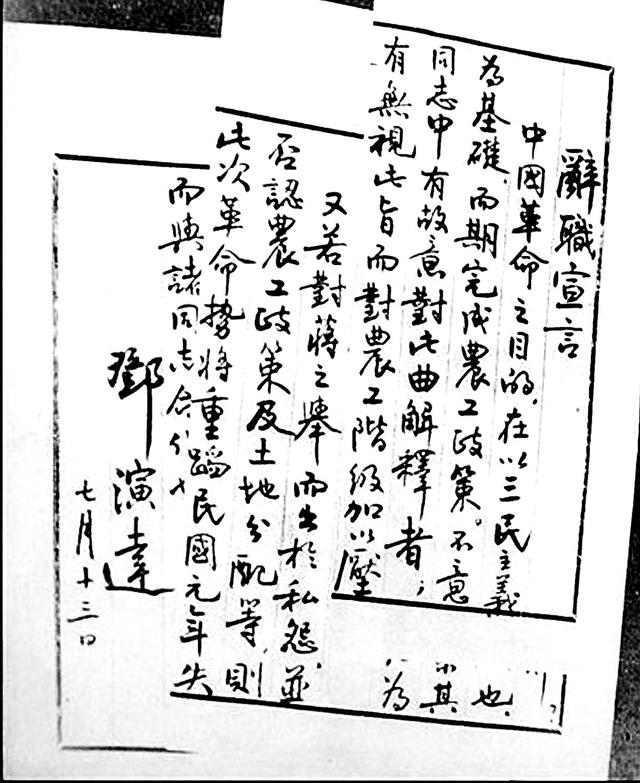 辭職宣言
中國革命之目的，在以三民主義
為基礎，而期完成農工政策。不意
同志中有故意對此曲解釋者，
有無視此旨而對農工階級加以壓
又若對蔣之舉而出於私怨，並
否認農工政策及土地分配等，則
此次革命勢將重蹈民國元年失
而與諸同志合分
鄧演達
七月十三日
也
其
為